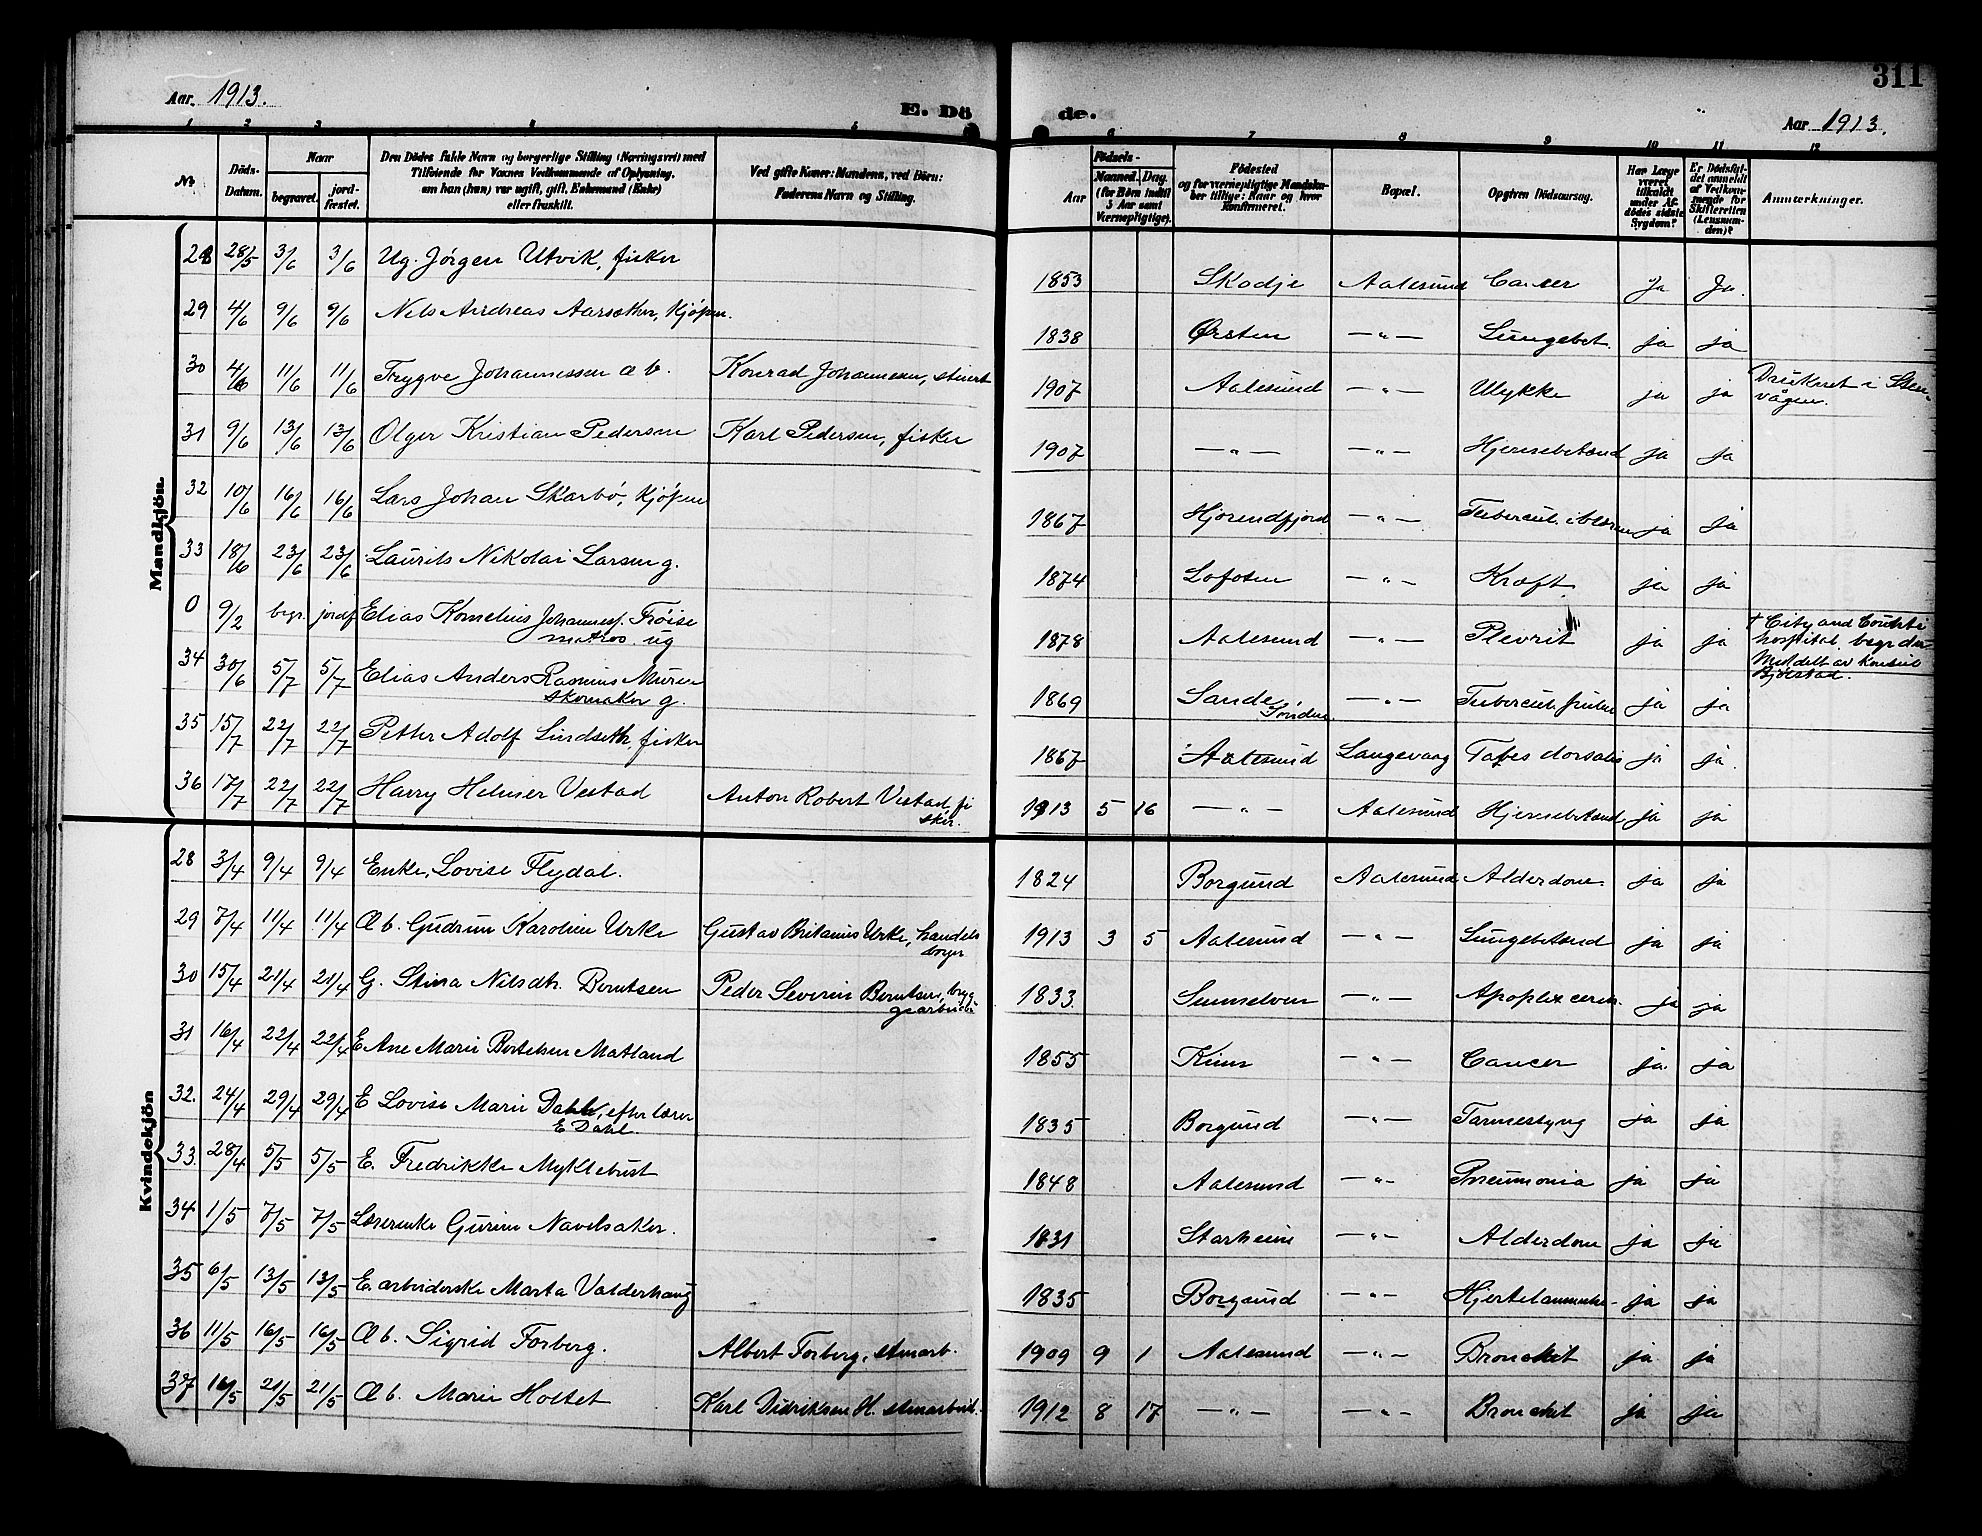 311
Aar. 1913.
E. Dö de.
Aar 1913.
1 2 3 4 5 6 7 8 9 10 11 12
No.
Döds-Datum.
Naar
begravet.
jord-fæstet.
Den Dödes fulde Navn og borgerlige Stilling (Næringsvei) med
Tilföiende for Voxnes Vedkommende af Oplysning,
om han (hun) var ugift, gift, Enkemand (Enke)
eller fraskilt.
Ved gifte Koner: Mandens, ved Börn:
Faderens Navn og Stilling.
Födsels-
Aar
Maaned. Dag.
(for Börn indtil
3 Aar samt
Værnepligtige).
Födested
og for værnepligtige Mandska-
ber tillige: Naar og hvor
Konfirmeret.
Bopæl.
Opgiven Dödsaarsag.
Har Læge
været
tilkaldt
under Af-
dödes sidste
Sygdom?
Er Dödsfal-
det anmeldt
af Vedkom-
mende for
Skifteretten
(Lensman-
den)?
Anmærkninger.
Mandkjön.
28 28/5 3/6 3/6 Ug. Jørgen Utvik, fisker 1853 Skodje Aalesund Cancer Ja Ja.
29 4/6 9/6 9/6 Nils Andreas Aarsæther, Kjøpm. 1838 Ørsten —"— Lungebet. ja ja
30 4/6 11/6 11/6 Trygve Johannessen æb. Konrad Johannesen, stuert 1907 Aalesund —"— Ulykke ja ja Druknet i Sten-
vågen.
31 9/6 13/6 13/6 Olger Kristian Pedersen Karl Pedersen, fisker 1907 —"— —"— Hjernebetænd ja ja
32 10/6 16/6 16/6 Lars Johan Skarbø, Kjøpm 1867 Hjørendfjord —"— Tubercul. i blæren ja ja
33 18/6 23/6 23/6 Laurits Nikolai Larsen g. 1874 Lofoten —"— Kræft. ja ja
0 9/2 begr. jordf Elias Kornelius Johannesf. Frøise
matros ug 1878 Aalesund —"— Plevrit ja ja † City and Counti
hospital, begr. der
Meddelt av konsul
Bjølstad.
34 30/6 5/7 5/7 Elias Anders Rasmus Muren
skomaker g. 1869 Sande
Søndm. —"— Tubercul. pulm ja ja
35 15/7 22/7 22/7 Petter Adolf Lindseth, fisker 1867 Aalesund Langevaag Tabes dorsalis ja ja.
36 17/7 22/7 22/7 Harry Helmer Vestad Anton Robert Vestad, fi
sker. 1913 5 16 —"— Aalesund Hjernebetænd ja ja
Kvindekjön
28 3/4 9/4 9/4 Enke, Lovise Flydal. 1824 Borgund Aalesund Alderdom. ja ja
29 7/4 11/4 11/4 Æb. Gudrun Karoline Urke Gustav Britanius Urke, handels
borger 1913 3 5 Aalesund —"— Lungebetænd ja ja
30 15/4 21/4 21/4 G. Stina Nilsdtr. Berntsen Peder Severin Berntsen, bryg-
gearbeider 1833. Sunnelven —"— Apoplex cereb. ja ja
31 16/4 22/4 22/4 E Ane Marie Bertelsen Matland 1855 Kinn —"— Cancer ja. ja
32. 24/4 29/4 29/4 E Lovise Marie Dahl, efter lærer
E Dahl 1835 Borgund —"— Tarmeslyng ja ja
33. 28/4 5/5 5/5 E. Fredrikke Myklebust 1848 Aalesund —"— Pneumonia ja ja
34 1/5 7/5 7/5 Lærerenke Gurine Navelsaker. 1831 Starheim —"— Alderdom ja ja
35 6/5 13/5 13/5 E. arbeiderske Marta Valderhaug 1835 Borgund —"— Hjertelammelse ja ja
36 11/5 16/5 16/5 Æb. Sigrid Forberg. Albert Forberg, stenarb. 1909 9 1 Aalesund —"— Bronchit ja ja
37 16/5 21/5 21/5 Æb. Marie Holtet Karl Didriksen H. stenarbeid. 1912 8 17 —"— —"— Bronchit ja ja